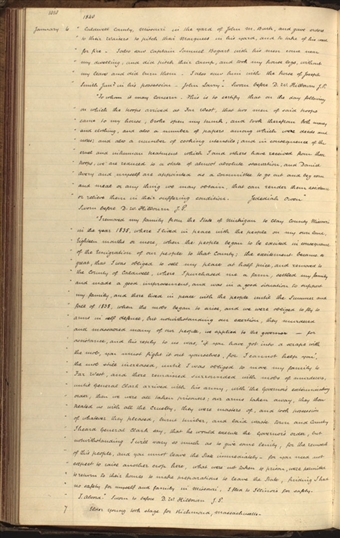 1840
January 6 " Caldwell County, Missouri, in the yard of John M. Burk, and gave orders
to their soldiers to pitch their Marquees in his yard, and to take of his wood
for fire. I also saw Captain Samuel Bogart with his men come near
my dwelling, and did pitch their camp, and took my house logs, without
my leave and did burn them. I also saw them with the horse of Joseph
Smith Junr in his possession. John Lowry". Sworn before D. W. Kilbourn J.P.
"To whom it may concern. This is to certify that on the day following
on which the troops arrived at Far West, that two men of said troops
came to my house, broke open my trunk, and took therefrom both money
and clothing, and also a number of papers among which were deeds and
notes; and also a number of clothing besides; and in consequence of the
cruel and inhuman treatment which I and others have received from these
troops, we are reduced to a state of almost absolute starvation, and David
Avery and myself are appointed as a committee to go out and beg corn
and meat or any thing we may obtain, that can render them assistance
or relieve them in their suffering condition. Jedediah Owen"
Sworn before D. W. Kilbourn J.P.
"I removed my family from the State of Michigan to Clay County Missouri
in the year 1835, where I lived in peace with the people, on my own land,
Eighteen months or more, when the people began to be excited in consequence
of the Emigration of our people to that County; the excitement became so
great, that I was obliged to sell my place at half price, and removed to
the County of Caldwell, where I purchased me a farm, settled my family
and made a good improvement, and was in a good situation to support
my family, and there lived in peace with the people until the Summer and
fall of 1838, when the mob began to arise, and we were obliged to fly to
arms in self defence, but notwithstanding our exertion, they murdered
and massacred many of our people, we applied to the governor for
assistance, and his reply to us was, "if you have got into a scrape with
the mob, you must fight it out yourselves, for I cannot help you",
the mob still increased, until I was obliged to move my family to
Far West, and there remained surrounded with mobs of murderers,
until General Clark arrived with his army, with the Governor's exterminating
order; then we were all taken prisoners, our arms taken away, they then
treated us with all the Cruelty, they were masters of, and took possession
of whatever they pleased, burnt timber, and laid waste town and County
I heard General Clark say, that he would execute the Governor's order, but
notwithstanding I will vary so much as to give some lenity, for the removal
of this people, and you must leave the State immediately. for you need not
expect to raise another crop here, what were not taken to prison, were permitted
to return to their homes to make preparations to leave the State, finding I had
no safety for myself and family in Missouri, I fled to Illinois for safety.
Sworn to before D. W. Kilbourn J.P.
7 Elder Young took stage for Richmond, Massachusetts.